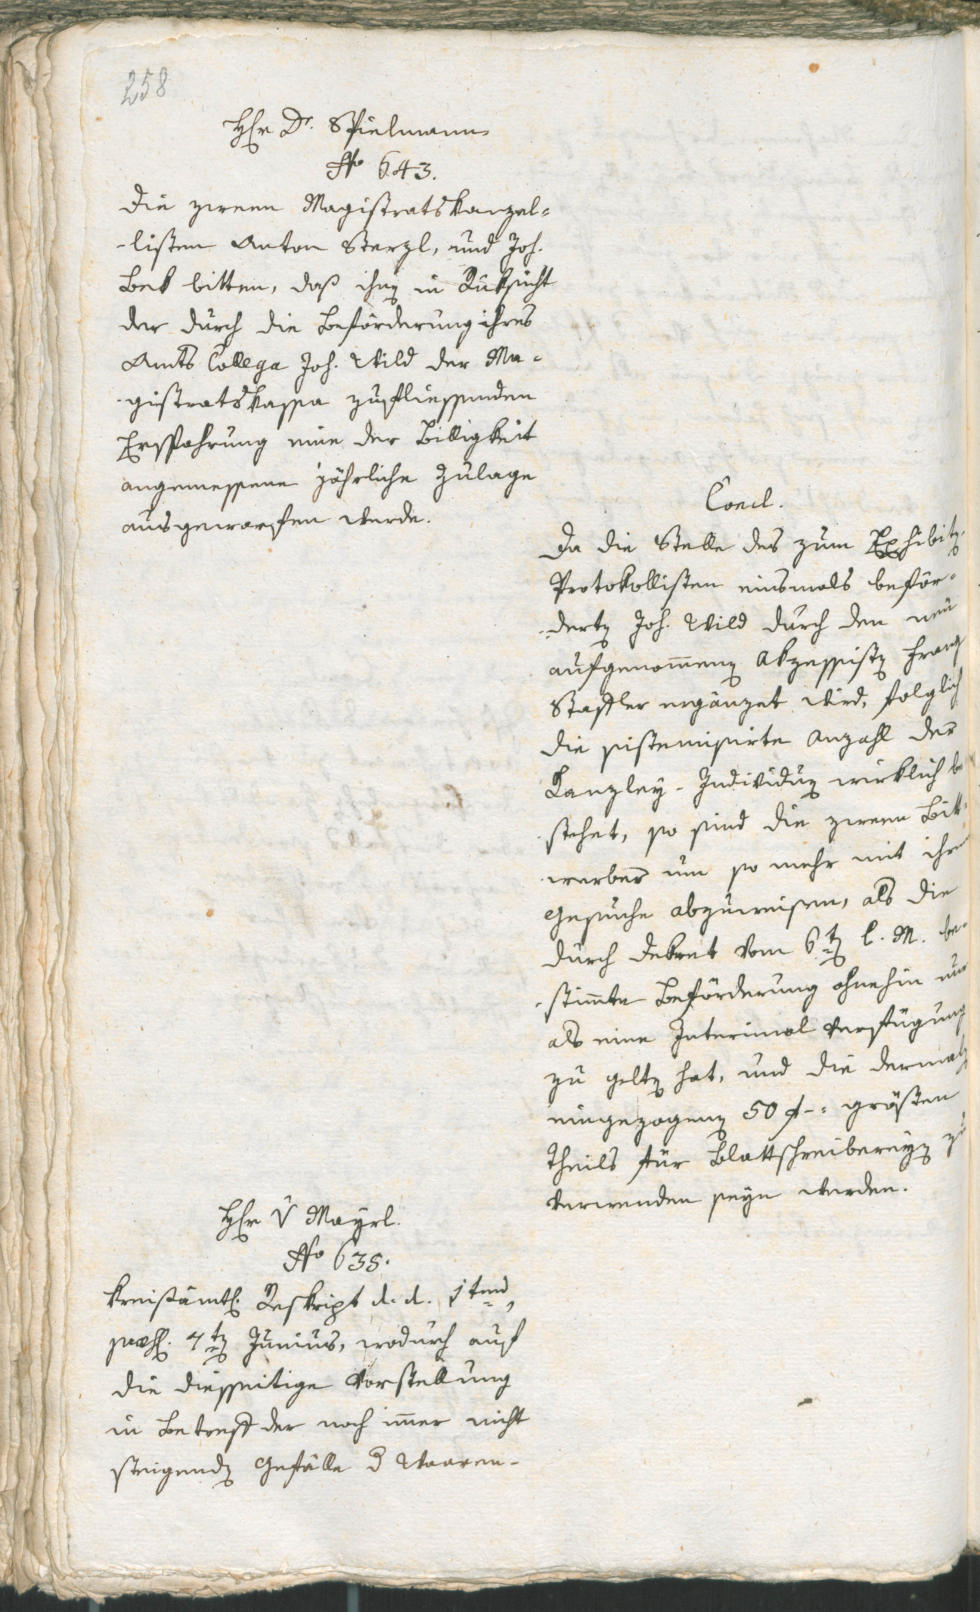 258
Hr Dr. Spielmann
No 643.
Die zween Magistratskanzel-
-listen Anton Sterzl, und Joh.
Bek bitten, daß ihnen in Rüksicht
der durch die Beförderung ihres
Amts Collega Joh. Wild der Ma-
-gistratskassa zufliessenden
Ersparung eine der Billigkeit
angemessene jährliche Zulage
ausgeworfen werde.
Concl.
Da die Stelle des zum Exhibitz.
Protokollisten einsmals beför-
-derten Joh. Wild durch den neu
aufgenommenen Akzessisten Franz
Stadler ergänzet wird, folglich
die sistemisirte Anzahl der
Kanzley-Individuen wirklich be
-stehet, so sind die zween Bitt-
-werber um so mehr mit ihrem
Gesuche abzuweisen, als die
durch Dekret vom 6ten l. M. be-
-stimmte Beförderung ohnehin nur
als eine Interimal Verfügung
zu gelten hat, und die dermalen
eingezogenen 50 f -: größten
Theils für Blattschreibereyen zu
verwenden seyn werden.
Hr v Mayrl.
No 635.
Kreisämtl. Reskript d. d. 1ten
praes. 4ten Junius, wodurch auf
die diesseitige Vorstellung
in Betreff der noch immer nicht
steigenden Gefälle d Waaren-